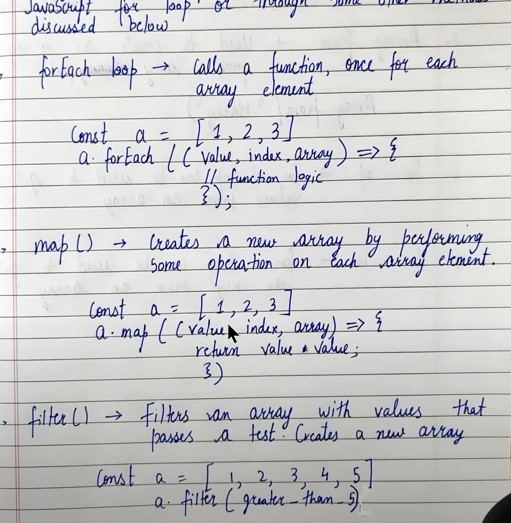 JavaScript for loop or through some other methods
discussed below
forEach loop → Calls a function, once for each
array element
Const a = [1, 2, 3]
a. forEach ((value, index, array) => {
// function logic
});
map() → Creates a new array by performing
some operation on each array element.
Const a = [1, 2, 3]
a. map ((value, index, array) => {
return value * value;
})
filter() → Filters an array with values that
passes a test. Creates a new array
Const a = [1, 2, 3, 4, 5]
a. filter (greater_than_5)